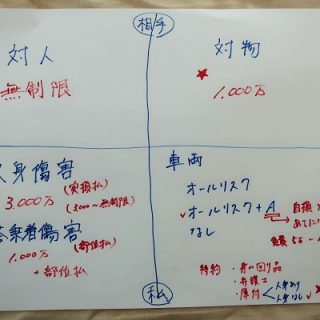 相手
対人
無制限
対物
1,000万
人身傷害
(実損払)
3,000万
(3000~無制限)
搭乗者傷害
(部位払)
1,000万
+部位払
車両
オールリスク
オールリスク + A
なし
自損
免責 5
特約
・身の回り品
・弁護士
・原付
人身あり
人身なし
私